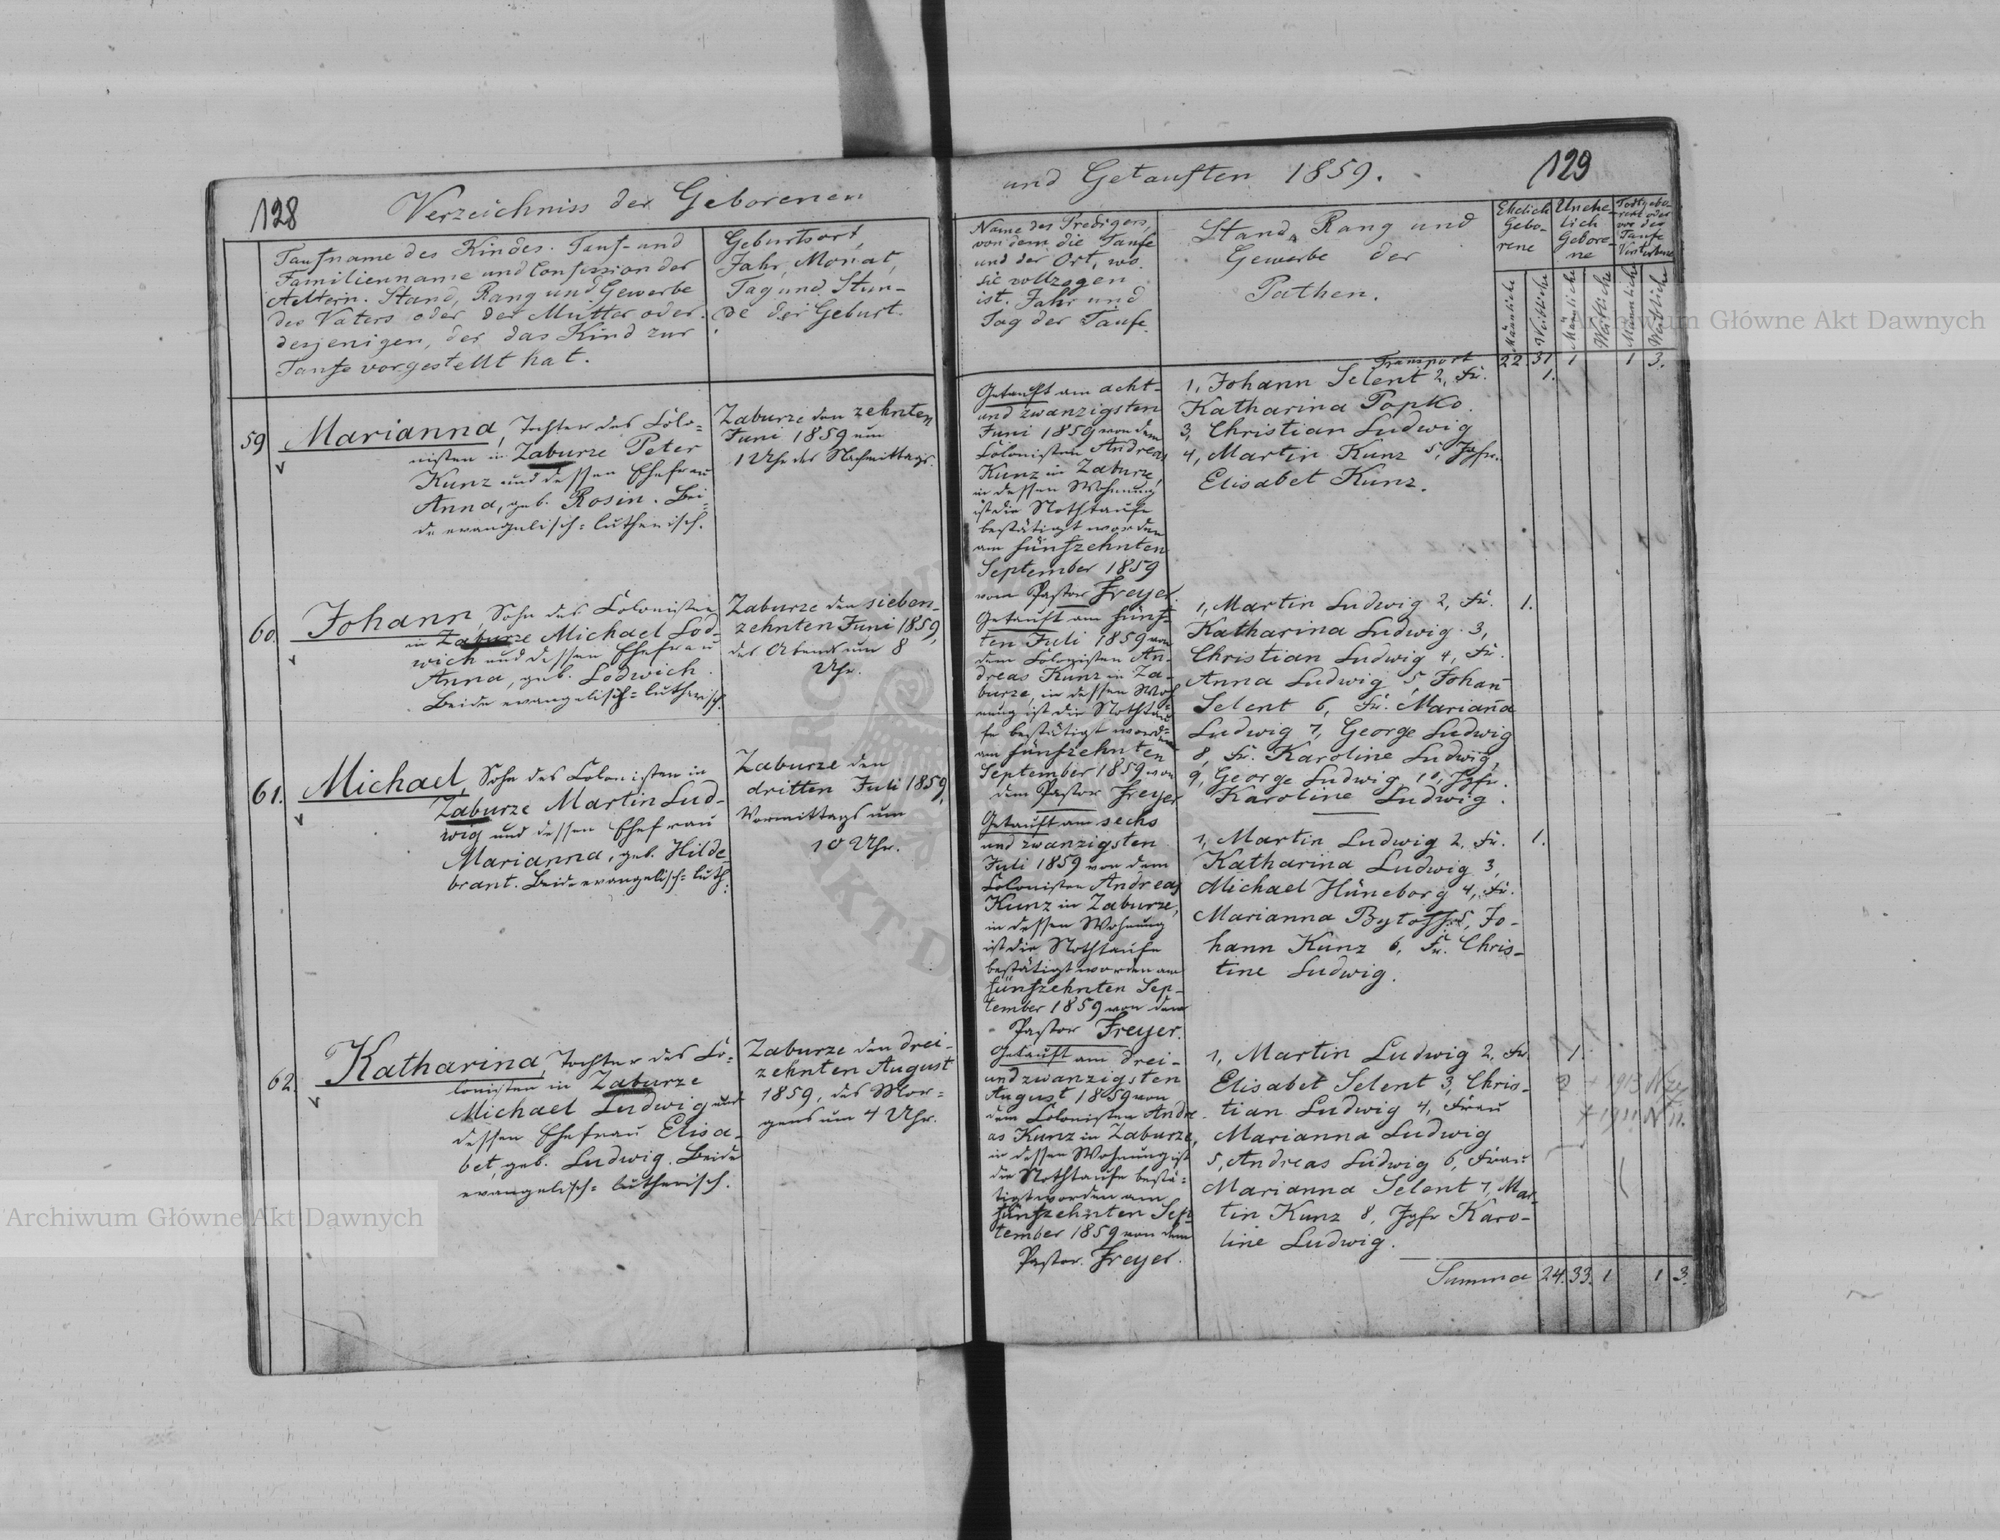 128
Verzeichniss der Geborenen
Taufname des Kindes. Tauf- und
Familienname und Confession der
Aeltern. Stand, Rang und Gewerbe
des Vaters oder der Mutter oder
desjenigen, der das Kind zur
Taufe vorgestellt hat.
Geburtsort,
Jahr, Monat,
Tag und Stun-
de der Geburt.
59
Marianna, Tochter des Colo-
nisten in Zaburze Peter
Kunz und dessen Ehefrau
Anna, geb. Rosin. Bei-
de evangelisch-lutherisch.
Zaburze den zehnten
Juni 1859 um
1 Uhr des Nachmittags.
60.
Johann, Sohn des Colonisten
in Zaburze Michael Lod-
wich und dessen Ehefrau
Anna, geb. Lodwich.
Beide evangelisch-lutherisch.
Zaburze den sieben-
zehnten Juni 1859,
des Abends um 8
Uhr.
61.
Michael, Sohn des Colonisten in
Zaburze Martin Lud-
wig und dessen Ehefrau
Marianna, geb. Hilde-
brant. Beide evangelisch-luth.
Zaburze den
dritten Juli 1859,
Vormittags um
10 Uhr.
62.
Katharina, Tochter des Co-
lonisten in Zaburze
Michael Ludwig und
dessen Ehefrau Elisa-
bet, geb. Ludwig. Beide
evangelisch-lutherisch.
Zaburze den drei-
zehnten August
1859, des Mor-
gens um 4 Uhr.
und Getauften 1859.
129
Name des Predigers,
von dem die Taufe
und der Ort, wo
sie vollzogen
ist. Jahr und
Tag der Taufe.
Stand, Rang und
Gewerbe der
Pathen.
Ehelich
Gebo-
rene
Unehe
lich
Gebore-
ne
Todtgebo-
rene oder
vor der
Taufe
Verstorbene
Männliche
Weibliche
Männliche
Weibliche
Männliche
Weibliche
Transport 22 31 1 1 3.
Getauft am acht-
und zwanzigsten
Juni 1859 von dem
Colonisten Andreas
Kunz in Zaburze,
in dessen Wohnung
ist die Nothtaufe
bestätigt worden
am fünfzehnten
September 1859
vom Pastor Freyer.
1, Johann Selent 2, Fr. 1.
Katharina Popko.
3, Christian Ludwig
4, Martin Kunz 5, Jgfr.
Elisabet Kunz.
Getauft am fünf-
ten Juli 1859 von
dem Colonisten An-
dreas Kunz in Za-
burze, in dessen Woh-
nung ist die Nothtau-
fe bestätigt worden
am fünfzehnten
September 1859 von
dem Pastor Freyer
1, Martin Ludwig 2, Fr. 1.
Katharina Ludwig. 3,
Christian Ludwig 4, Fr.
Anna Ludwig 5, Johan̄
Selent 6, Fr. Marian̄a
Ludwig 7, George Ludwig
8, Fr. Karoline Ludwig,
9, George Ludwig 10, Jgfr.
Karoline Ludwig.
Getauft am sechs
und zwanzigsten
Juli 1859 von dem
Colonisten Andreas
Kunz in Zaburze,
in dessen Wohnung
ist die Nothtaufe
bestätigt worden am
fünfzehnten Sep-
tember 1859 von dem
Pastor Freyer.
1, Martin Ludwig 2, Fr. 1.
Katharina Ludwig 3,
Michael Hüneborg 4, Fr.
Marianna 5, Jo-
hann Kunz 6, Fr. Chris-
tine Ludwig.
Getauft am drei-
und zwanzigsten
August 1859 von
dem Colonisten Andre
as Kunz in Zaburze,
in dessen Wohnung ist
die Nothtaufe bestä-
tigt worden am
fünfzehnten Sep-
tember 1859 von dem
Pastor Freyer.
1, Martin Ludwig 2, Fr. 1.
Elisabet Selent 3, Chris-
tian Ludwig 4, Frau
Marianna Ludwig
5, Andreas Ludwig 6, Frau
Marianna Selent 7, Mar-
tin Kunz 8, Jgfr Karo-
line Ludwig.
Summa 24. 33. 1 1 3.
Archiwum Główne Akt Dawnych
Archiwum Główne Akt Dawnych